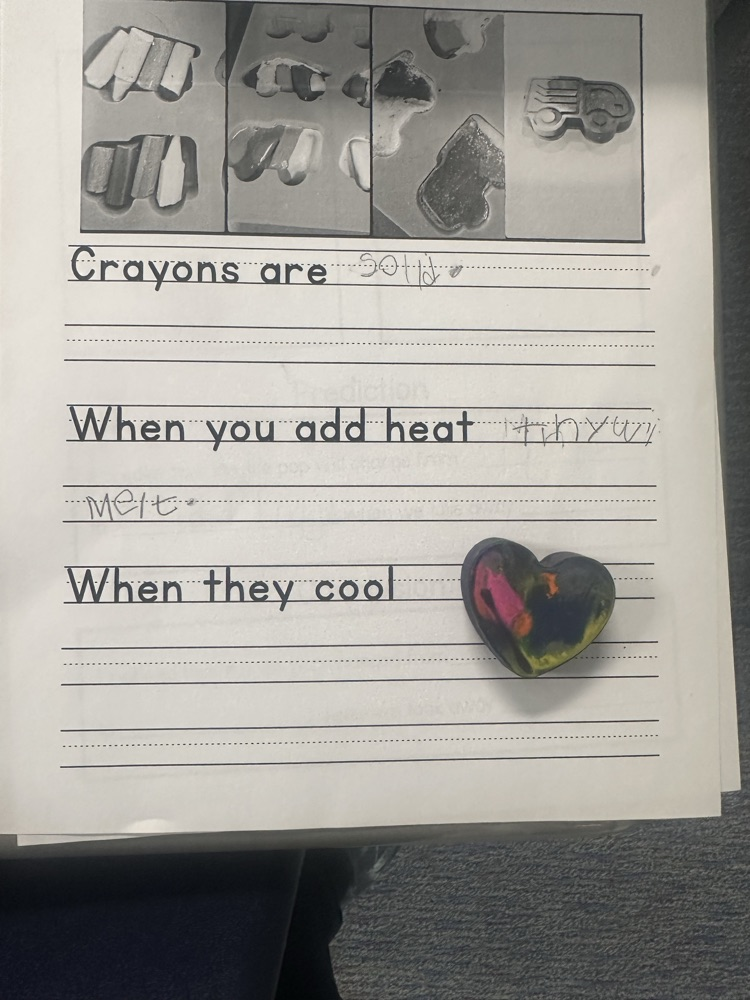 Crayons are solid.
When you add heat
melt.
When they cool